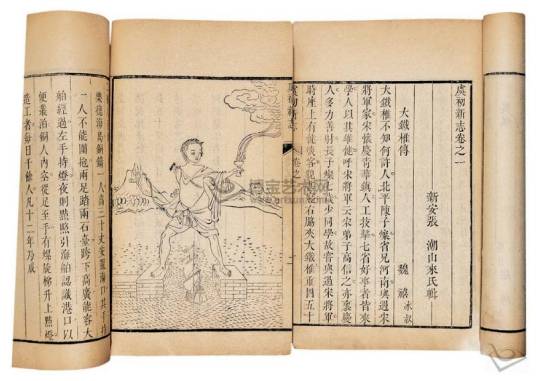 虞初新志卷之一
新安張 潮山來氏輯
大鐵椎傳
魏 禧 冰叔
大鐵椎不知何許人北平陳子燦省兄河南與遇宋
將軍家宋懷慶青華鎮人工技擊七省好事者皆來
學人以其雄健呼宋將軍云宋弟子高信之亦懷慶
人多力善射長子燦七歲少同學故嘗與過宋將軍
時座上有健啖客貌甚寢右脅夾大鐵椎重四五十
虞初新志
卷之一
一
樂德海島銅鑄一人高二十丈安置海口其手指
一人不能圍抱兩足踏兩石臺跨下高廣能容大
舶經過左手持燈夜則點照引海舶認識港口以
便叢泊銅人內空從足至手有螺旋梯升上點燈
造工者每日千餘人凡十二年乃成